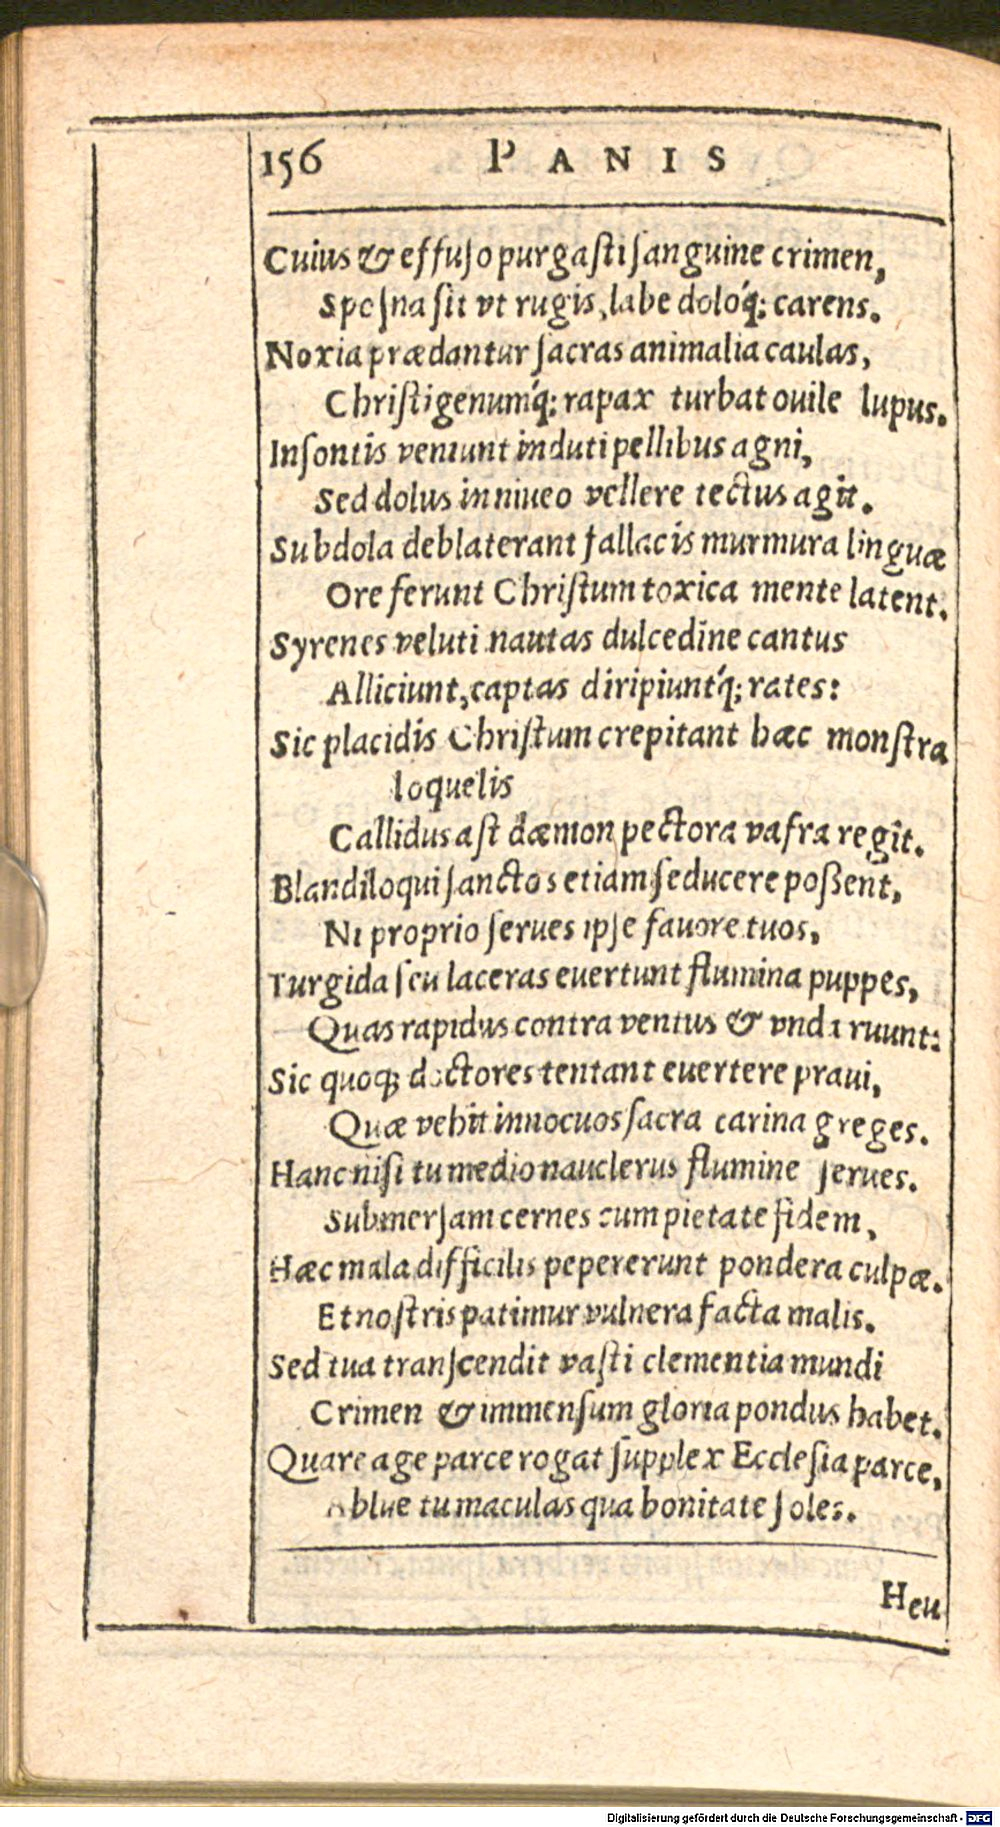 156 PANIS
Cuius & effuſo purgaſti ſanguine crimen,
Sponſa ſit vt rugis, labe dolóq́; carens.
Noxia prædantur ſacras animalia caulas,
Chriſtigenumq́; rapax turbat ouile lupus.
Inſontis veniunt induti pellibus agni,
Sed dolus in niueo vellere tectus agit.
Subdola deblaterant fallacis murmura linguæ
Ore ferunt Chriſtum toxica mente latent.
Syrenes veluti nautas dulcedine cantus
Alliciunt, captas diripiuntq́; rates:
Sic placidis Chriſtum crepitant hæc monſtra
loquelis
Callidus aſt dæmon pectora vafra regit.
Blandiloqui ſanctos etiam ſeducere poßent,
Ni proprio ſerues ipſe fauore tuos,
Turgida ſeu laceras euertunt flumina puppes,
Quas rapidus contra ventus & vnda ruunt:
Sic quoqꝫ doctores tentant euertere praui,
Quæ vehit innocuos ſacra carina greges.
Hanc niſi tu medio nauclerus flumine ſerues.
Submerſam cernes cum pietate fidem,
Hæc mala difficilis pepererunt pondera culpæ.
Et noſtris patimur vulnera facta malis.
Sed tua tranſcendit vaſti clementia mundi
Crimen & immenſum gloria pondus habet.
Quare age parce rogat ſupplex Eccleſia parce,
Ablue tu maculas qua bonitate ſoles.
Heu
Digitalisierung gefördert durch die Deutsche Forschungsgemeinschaft - DFG